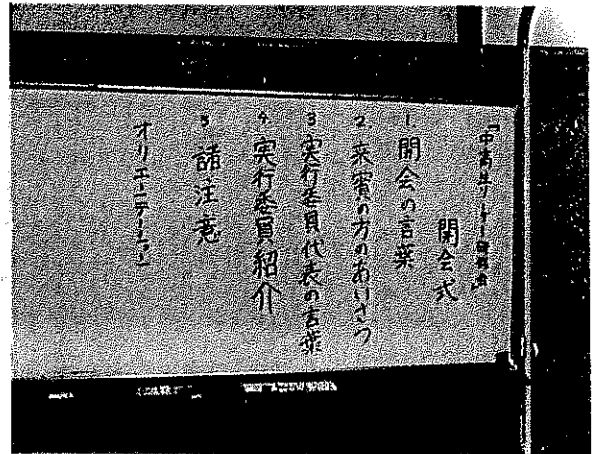 「中高生リーダー研修会」
開会式
1 開会の言葉
2 来賓の方のあいさつ
3 実行委員代表の言葉
4 実行委員紹介
5 諸注意
オリエンテーション